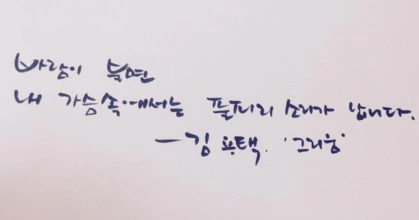 바람이 불면
내 가슴속에서는 풀피리 소리가 납니다.
— 김용택. '그리움'